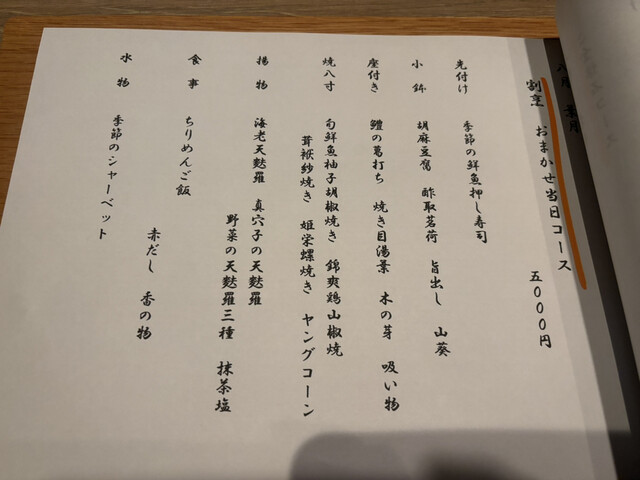 八月 葉月
割烹 おまかせ当日コース 五000円
先付け 季節の鮮魚押し寿司
小鉢 胡麻豆腐 酢取茗荷 旨出し 山葵
座付き 鱧の葛打ち 焼き目湯葉 木の芽 吸い物
焼八寸 旬鮮魚柚子胡椒焼き 錦爽鶏山椒焼
茸袱紗焼き 姫栄螺焼き ヤングコーン
揚物 海老天麩羅 真穴子の天麩羅
野菜の天麩羅三種 抹茶塩
食事 ちりめんご飯
赤だし 香の物
水物 季節のシャーベット